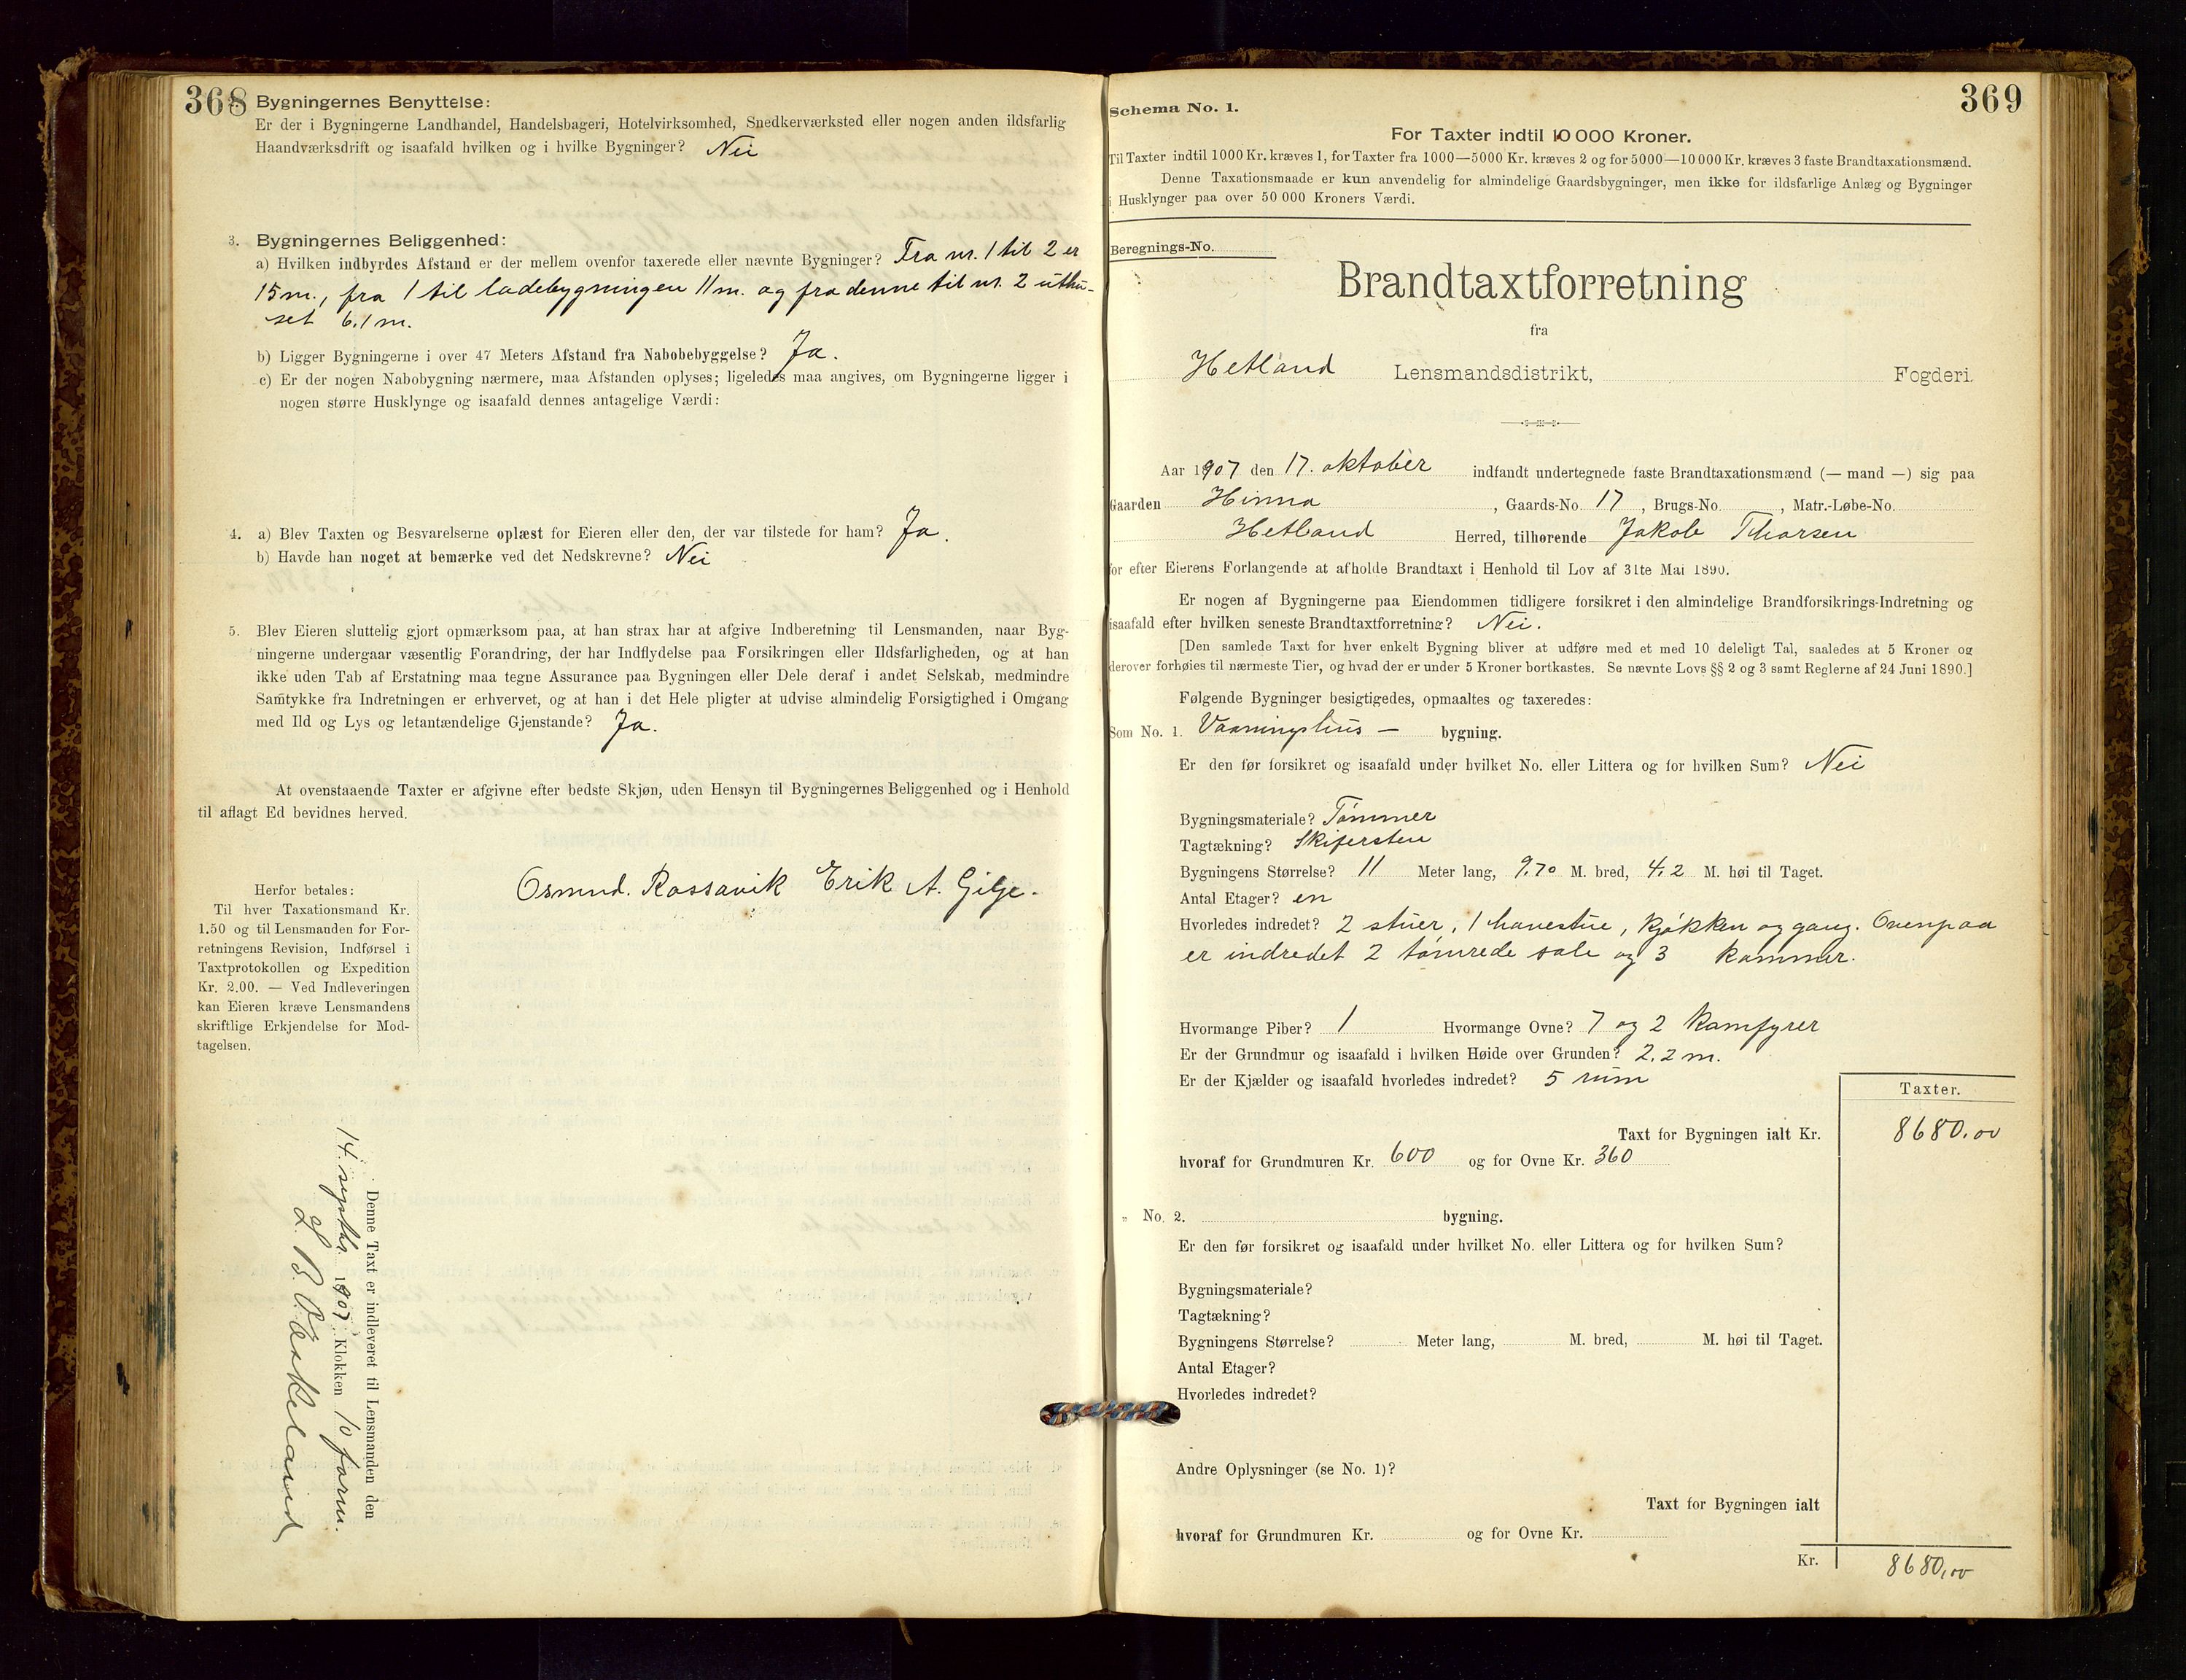 368
Bygningernes Benyttelse:
Er der i Bygningerne Landhandel, Handelsbageri, Hotelvirksomhed, Snedkerværksted eller nogen anden ildsfarlig
Haandværksdrift og isaafald hvilken og i hvilke Bygninger? Nei
3. Bygningernes Beliggenhed:
a) Hvilken indbyrdes Afstand er der mellem ovenfor taxerede eller nævnte Bygninger? Fra nr. 1 til 2 er
15 m., fra 1 til ladebygningen 11 m. og fra denne til nr. 2 uthu-
set 6,1 m.
b) Ligger Bygningerne i over 47 Meters Afstand fra Nabobebyggelse? Ja.
c) Er der nogen Nabobygning nærmere, maa Afstanden oplyses; ligeledes maa angives, om Bygningerne ligger i
nogen større Husklynge og isaafald dennes antagelige Værdi:
4. a) Blev Taxten og Besvarelserne oplæst for Eieren eller den, der var tilstede for ham? Ja.
b) Havde han noget at bemærke ved det Nedskrevne? Nei
5. Blev Eieren sluttelig gjort opmærksom paa, at han strax har at afgive Indberetning til Lensmanden, naar Byg-
ningerne undergaar væsentlig Forandring, der har Indflydelse paa Forsikringen eller Ildsfarligheden, og at han
ikke uden Tab af Erstatning maa tegne Assurance paa Bygningen eller Dele deraf i andet Selskab, medmindre
Samtykke fra Indretningen er erhvervet, og at han i det Hele pligter at udvise almindelig Forsigtighed i Omgang
med Ild og Lys og letantændelige Gjenstande? Ja.
At ovenstaaende Taxter er afgivne efter bedste Skjøn, uden Hensyn til Bygningernes Beliggenhed og i Henhold
til aflagt Ed bevidnes herved.
Osmnd. Rossavik Erik A. Gilje.
Herfor betales:
Til hver Taxationsmand Kr.
1.50 og til Lensmanden for For-
retningens Revision, Indførsel i
Taxtprotokollen og Expedition
Kr. 2.00. — Ved Indleveringen
kan Eieren kræve Lensmandens
skriftlige Erkjendelse for Mod-
tagelsen.
Denne Taxt er indleveret til Lensmanden den
14. septbr. 1907 Klokken 10 form.
Eskeland
369
Schema No. 1.
For Taxter indtil 10 000 Kroner.
Til Taxter indtil 1000 Kr. kræves 1, for Taxter fra 1000—5000 Kr. kræves 2 og for 5000—10 000 Kr. kræves 3 faste Brandtaxationsmænd.
Denne Taxationsmaade er kun anvendelig for almindelige Gaardsbygninger, men ikke for ildsfarlige Anlæg og Bygninger
i Husklynger paa over 50 000 Kroners Værdi.
Beregnings-No.
Brandtaxtforretning
fra
Hetland Lensmandsdistrikt, Fogderi.
Aar 1907 den 17. oktober indfandt undertegnede faste Brandtaxationsmænd (— mand —) sig paa
Gaarden Hinna, Gaards-No. 17, Brugs-No. , Matr.-Løbe-No.
Hetland Herred, tilhørende Jakob Thorsen
for efter Eierens Forlangende at afholde Brandtaxt i Henhold til Lov af 31te Mai 1890.
Er nogen af Bygningerne paa Eiendommen tidligere forsikret i den almindelige Brandforsikrings-Indretning og
isaafald efter hvilken seneste Brandtaxtforretning? Nei.
[Den samlede Taxt for hver enkelt Bygning bliver at udføre med et med 10 deleligt Tal, saaledes at 5 Kroner og
derover forhøies til nærmeste Tier, og hvad der er under 5 Kroner bortkastes. Se nævnte Lovs §§ 2 og 3 samt Reglerne af 24 Juni 1890.]
Følgende Bygninger besigtigedes, opmaaltes og taxeredes:
Som No. 1. Vaaningshus — bygning.
Er den før forsikret og isaafald under hvilket No. eller Littera og for hvilken Sum? Nei
Bygningsmateriale? Tømmer
Tagtækning? Skifersten
Bygningens Størrelse? 11 Meter lang, 9,70 M. bred, 4,2 M. høi til Taget.
Antal Etager? en
Hvorledes indredet? 2 stuer, 1 havestue, kjøkken og gang. Ovenpaa
er indredet 2 tømrede sale og 3 kammer.
Hvormange Piber? 1 Hvormange Ovne? 7 og 2 komfyrer
Er der Grundmur og isaafald i hvilken Høide over Grunden? 2,2 m.
Er der Kjælder og isaafald hvorledes indredet? 5 rum
Taxter.
Taxt for Bygningen ialt Kr. 8680,00
hvoraf for Grundmuren Kr. 600 og for Ovne Kr. 360
„ No. 2. bygning.
Er den før forsikret og isaafald under hvilket No. eller Littera og for hvilken Sum?
Bygningsmateriale?
Tagtækning?
Bygningens Størrelse? Meter lang, M. bred, M. høi til Taget.
Antal Etager?
Hvorledes indredet?
Andre Oplysninger (se No. 1)?
Taxt for Bygningen ialt
hvoraf for Grundmuren Kr. og for Ovne Kr.
Kr. 8680,00